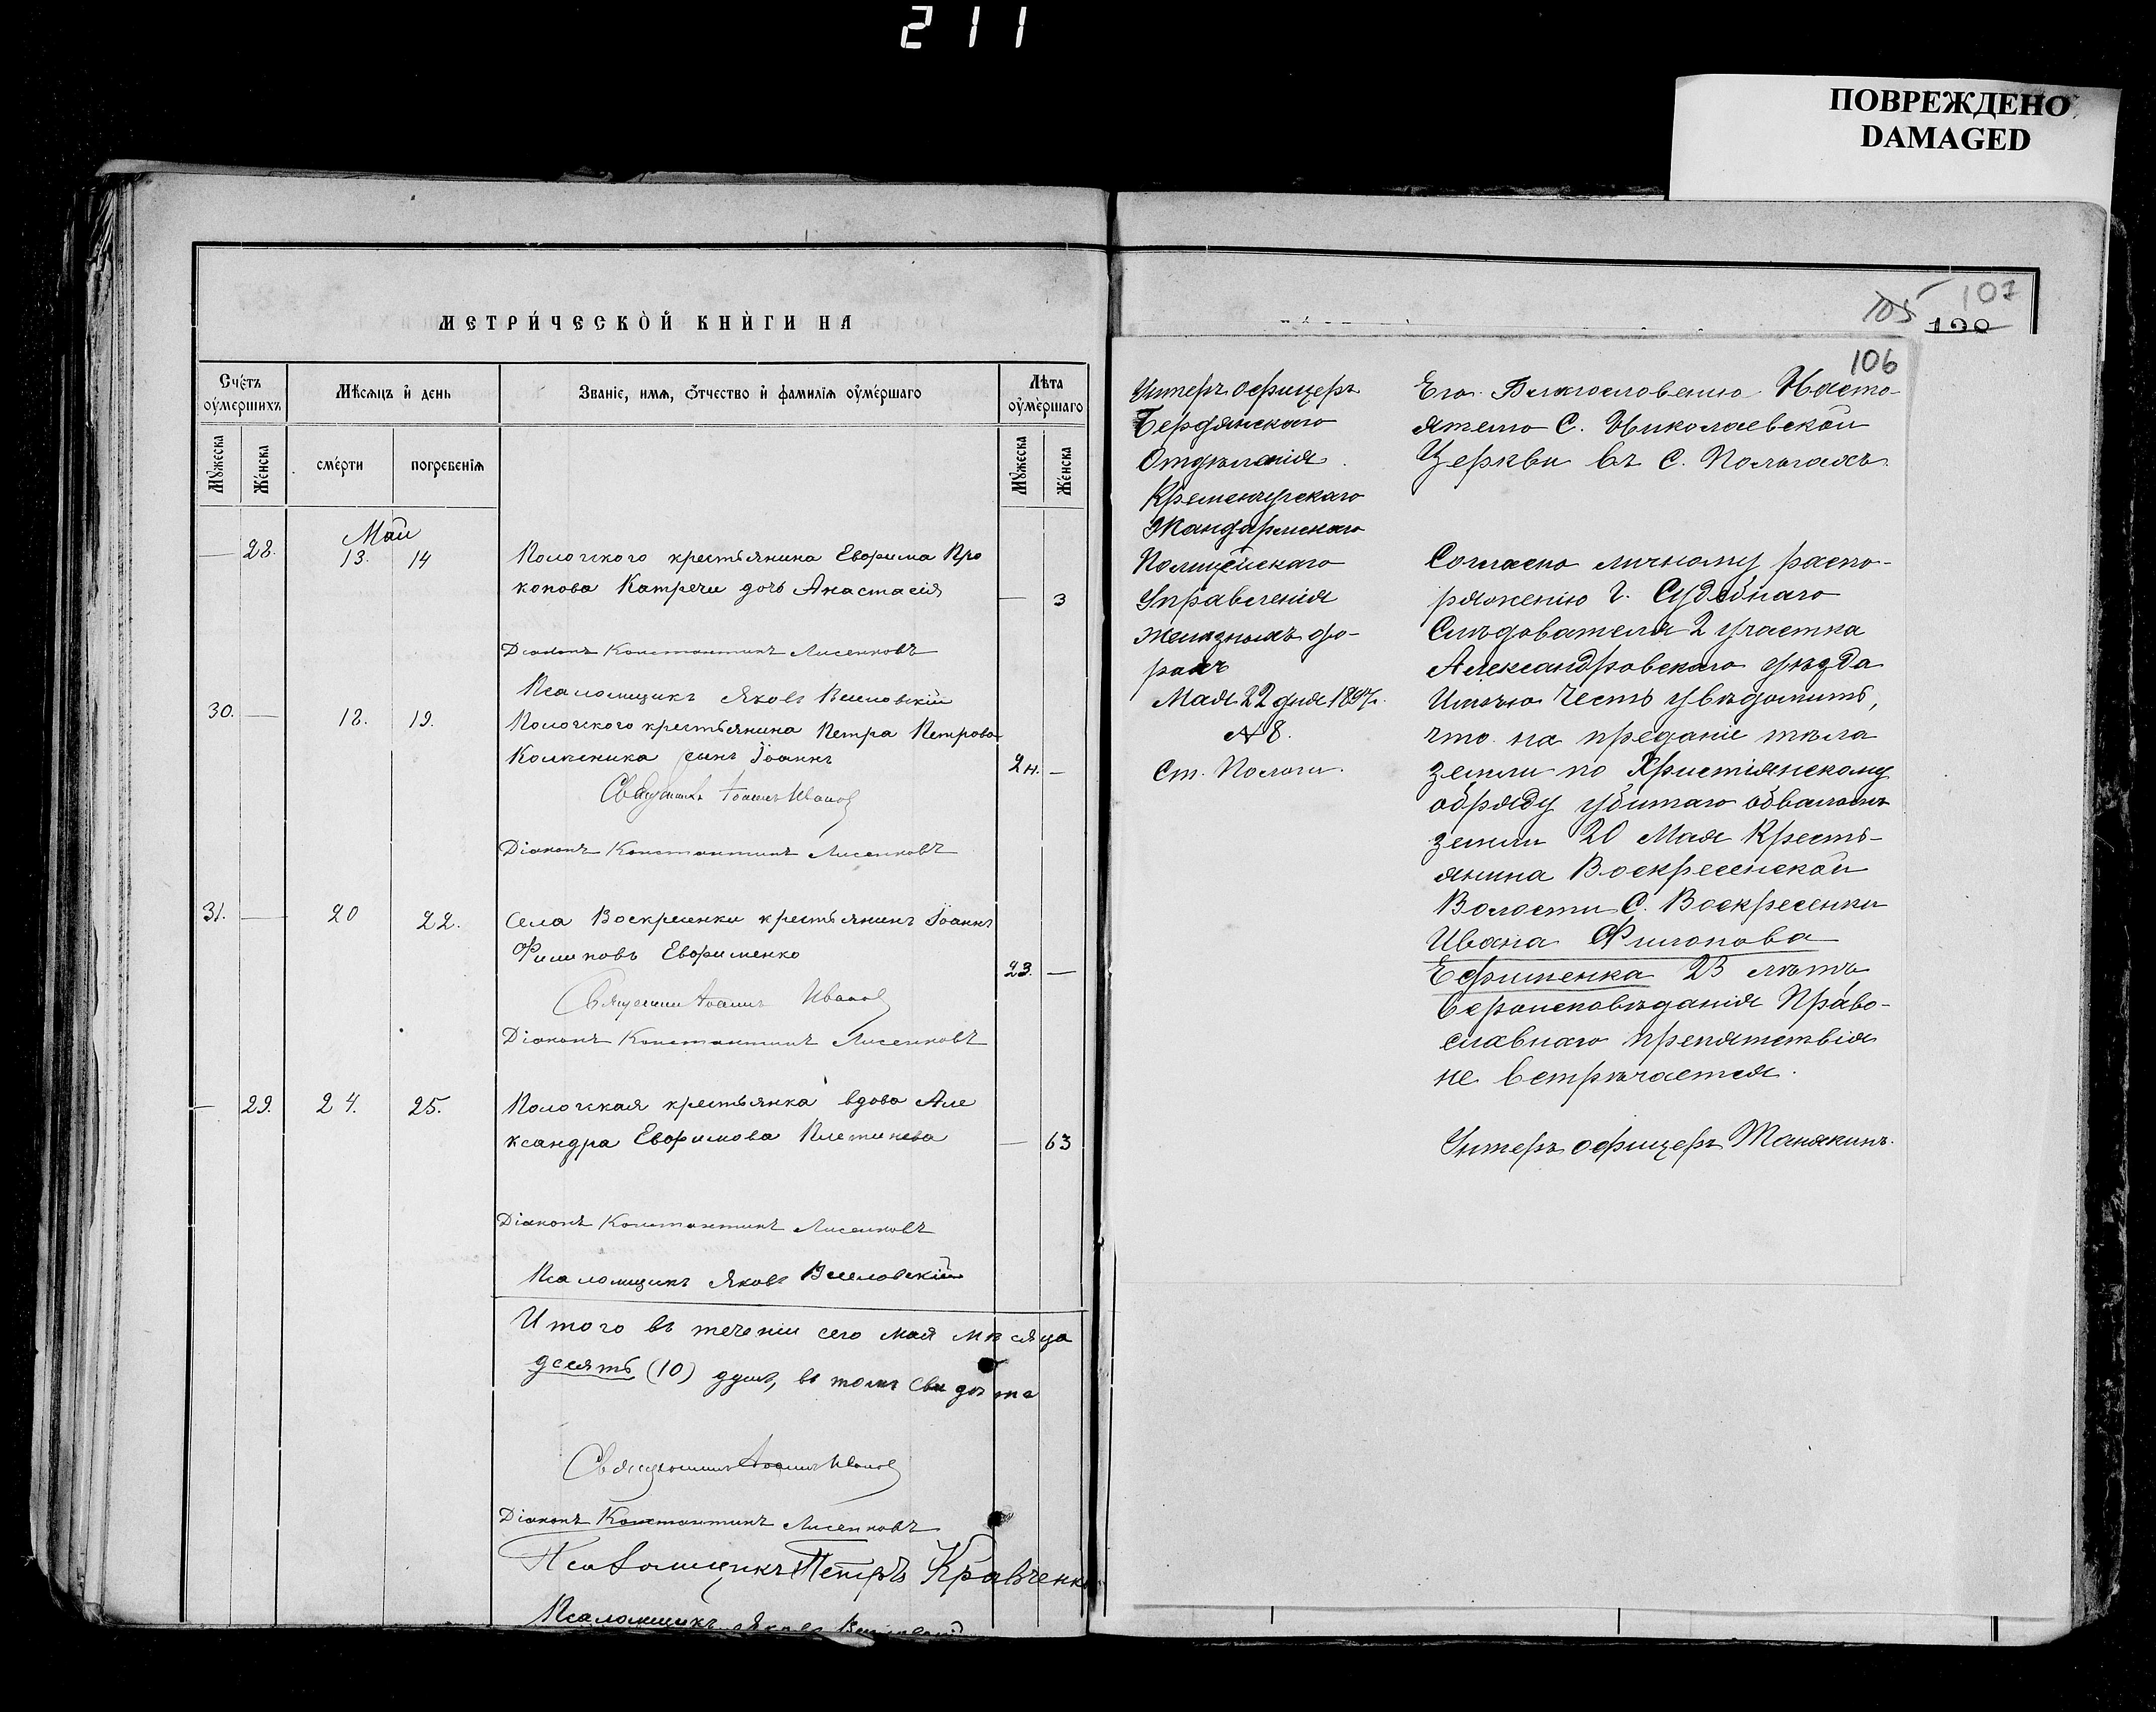 211
ПОВРЕЖДЕНО
DAMAGED
МЕТРИ́ЧЕСКОЙ КНИ́ГИ НА
Сче́тъ ᲂу҆ме́ршихъ
Мѣсяцъ и҆ день
Званіе, имѧ, ѻ҆́тчество и҆ фамиліѧ ᲂу҆ме́ршаго
Лѣта ᲂу҆ме́ршаго
Мꙋжеска
Же́нска
сме́рти
погребеніѧ
Мꙋжеска
Же́нска
Май
— 28. 13. 14 Пологского крестьянина Евфима Про
копова Катречи дочь Анастасія — 3
Діаконъ Константинъ Лисенковъ
Псаломщикъ Яковъ Веселовскій
30. — 18. 19. Пологского крестьянина Петра Петрова
сынъ Іоаннъ 2 н. —
Священникъ Іоаннъ Ивановъ
Діаконъ Константинъ Лисенковъ
31. — 20 22. Села Воскресенки крестьянинъ Іоаннъ
Филиповъ Евфименко 23. —
Священникъ Іоаннъ Ивановъ
Діаконъ Константинъ Лисенковъ
— 29. 24. 25. Пологская крестьянка вдова Але
ксандра Евфимова — 63
Діаконъ Константинъ Лисенковъ
Псаломщикъ Яковъ Веселовскій
Итого въ теченіи сего мая мѣсяца
десять (10) душъ, въ томъ
Священникъ Іоаннъ Ивановъ
Діаконъ Константинъ Лисенковъ
Псаломщикъ Петръ Кравченко
Псаломщикъ Яковъ Веселовскій
105 107
106
Унтеръ офицеръ
Бердянскаго
Отдѣленія
Кременчугскаго
Жандармскаго
Полицейскаго
Управленія
желѣзныхъ до-
рогъ
Мая 22 дня 1897 г.
№ 8.
Ст. Пологи.
Его Благословению Насто-
ятелю С. Николаевской
Церкви въ С. Пологахъ.
Согласно личному распо-
ряженію Г. Судебнаго
Слѣдователя 2 участка
Александровскаго уѣзда
Имѣю честь увѣдомить,
что на преданіе тѣла
земли по Христіянскому
обряду убитаго обваломъ
земли 20 Мая Кресть-
янина Воскресенской
Волости С. Воскресенки
Ивана Филопова
Ефименка 23 лѣтъ
вероисповѣданія Право-
славнаго препятствія
не встрѣчается.
Унтеръ офицеръ